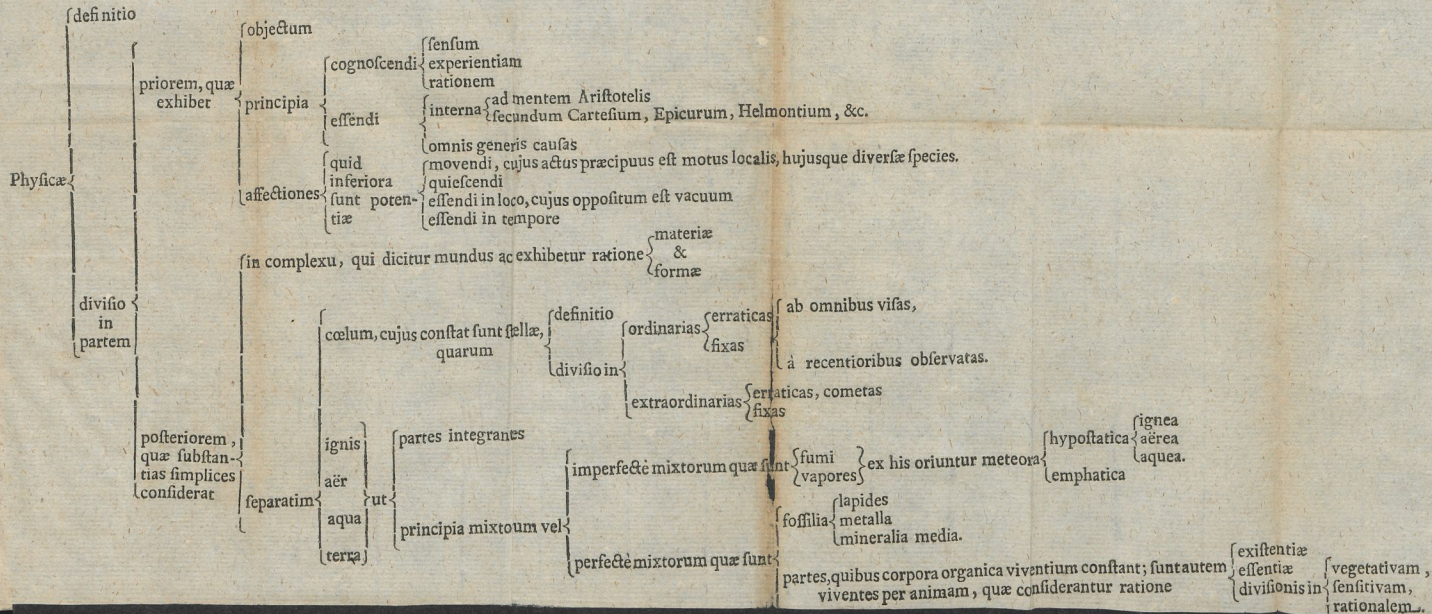 Phyſicæ
definitio
diviſio
in
partem
priorem, quæ
exhibet
objectum
principia
cognoſcendi
ſenſum
experientiam
rationem
eſſendi
interna
ad mentem Ariſtotelis
ſecundum Carteſium, Epicurum, Helmontium, &c.
omnis generis cauſas
affectiones
quid
inferiora
ſunt poten-
tiæ
movendi, cujus actus præcipuus eſt motus localis, hujusque diverſæ ſpecies.
quieſcendi
eſſendi in loco, cujus oppoſitum eſt vacuum
eſſendi in tempore
poſteriorem,
quæ ſubſtan-
tias ſimplices
conſiderat
in complexu, qui dicitur mundus ac exhibetur ratione
materiæ
&
formæ
ſeparatim
cœlum, cujus conſtat ſunt ſtellæ,
quarum
definitio
diviſio in
ordinarias
erraticas
ab omnibus viſas,
à recentioribus obſervatas.
fixas
extraordinarias
erraticas, cometas
fixas
ignis
aër
aqua
terra
ut
partes integrantes
principia mixtoum vel
imperfectè mixtorum quæ ſunt
fumi
vapores
ex his oriuntur meteora
hypoſtatica
ignea
aërea
aquea.
emphatica
perfectè mixtorum quæ ſunt
foſſilia
lapides
metalla
mineralia media.
partes, quibus corpora organica viventium conſtant; ſunt autem
viventes per animam, quæ conſiderantur ratione
exiſtentiæ
eſſentiæ
diviſionis in
vegetativam,
ſenſitivam,
rationalem.